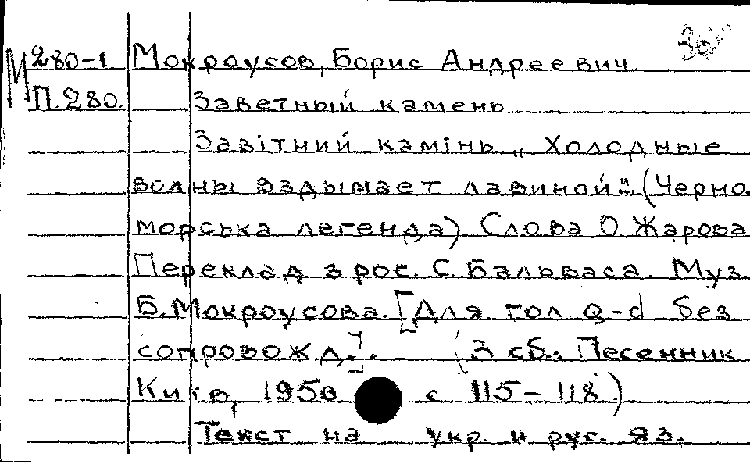 М 280-1 Мокроусов, Борис Андреевич
П.280. Заветный камень
Завітний камінь „Холодные
волны вздымает лавиной" (Черно
морська легенда) Слова О Жарова
Переклад з рос. С. Бальваса. Муз
Б. Мокроусова. [Для гол a-d без
сопровожд.].. (З сб.: Песенник
Київ, 1950 с 115-118)
Текст на укр. и рус. яз.